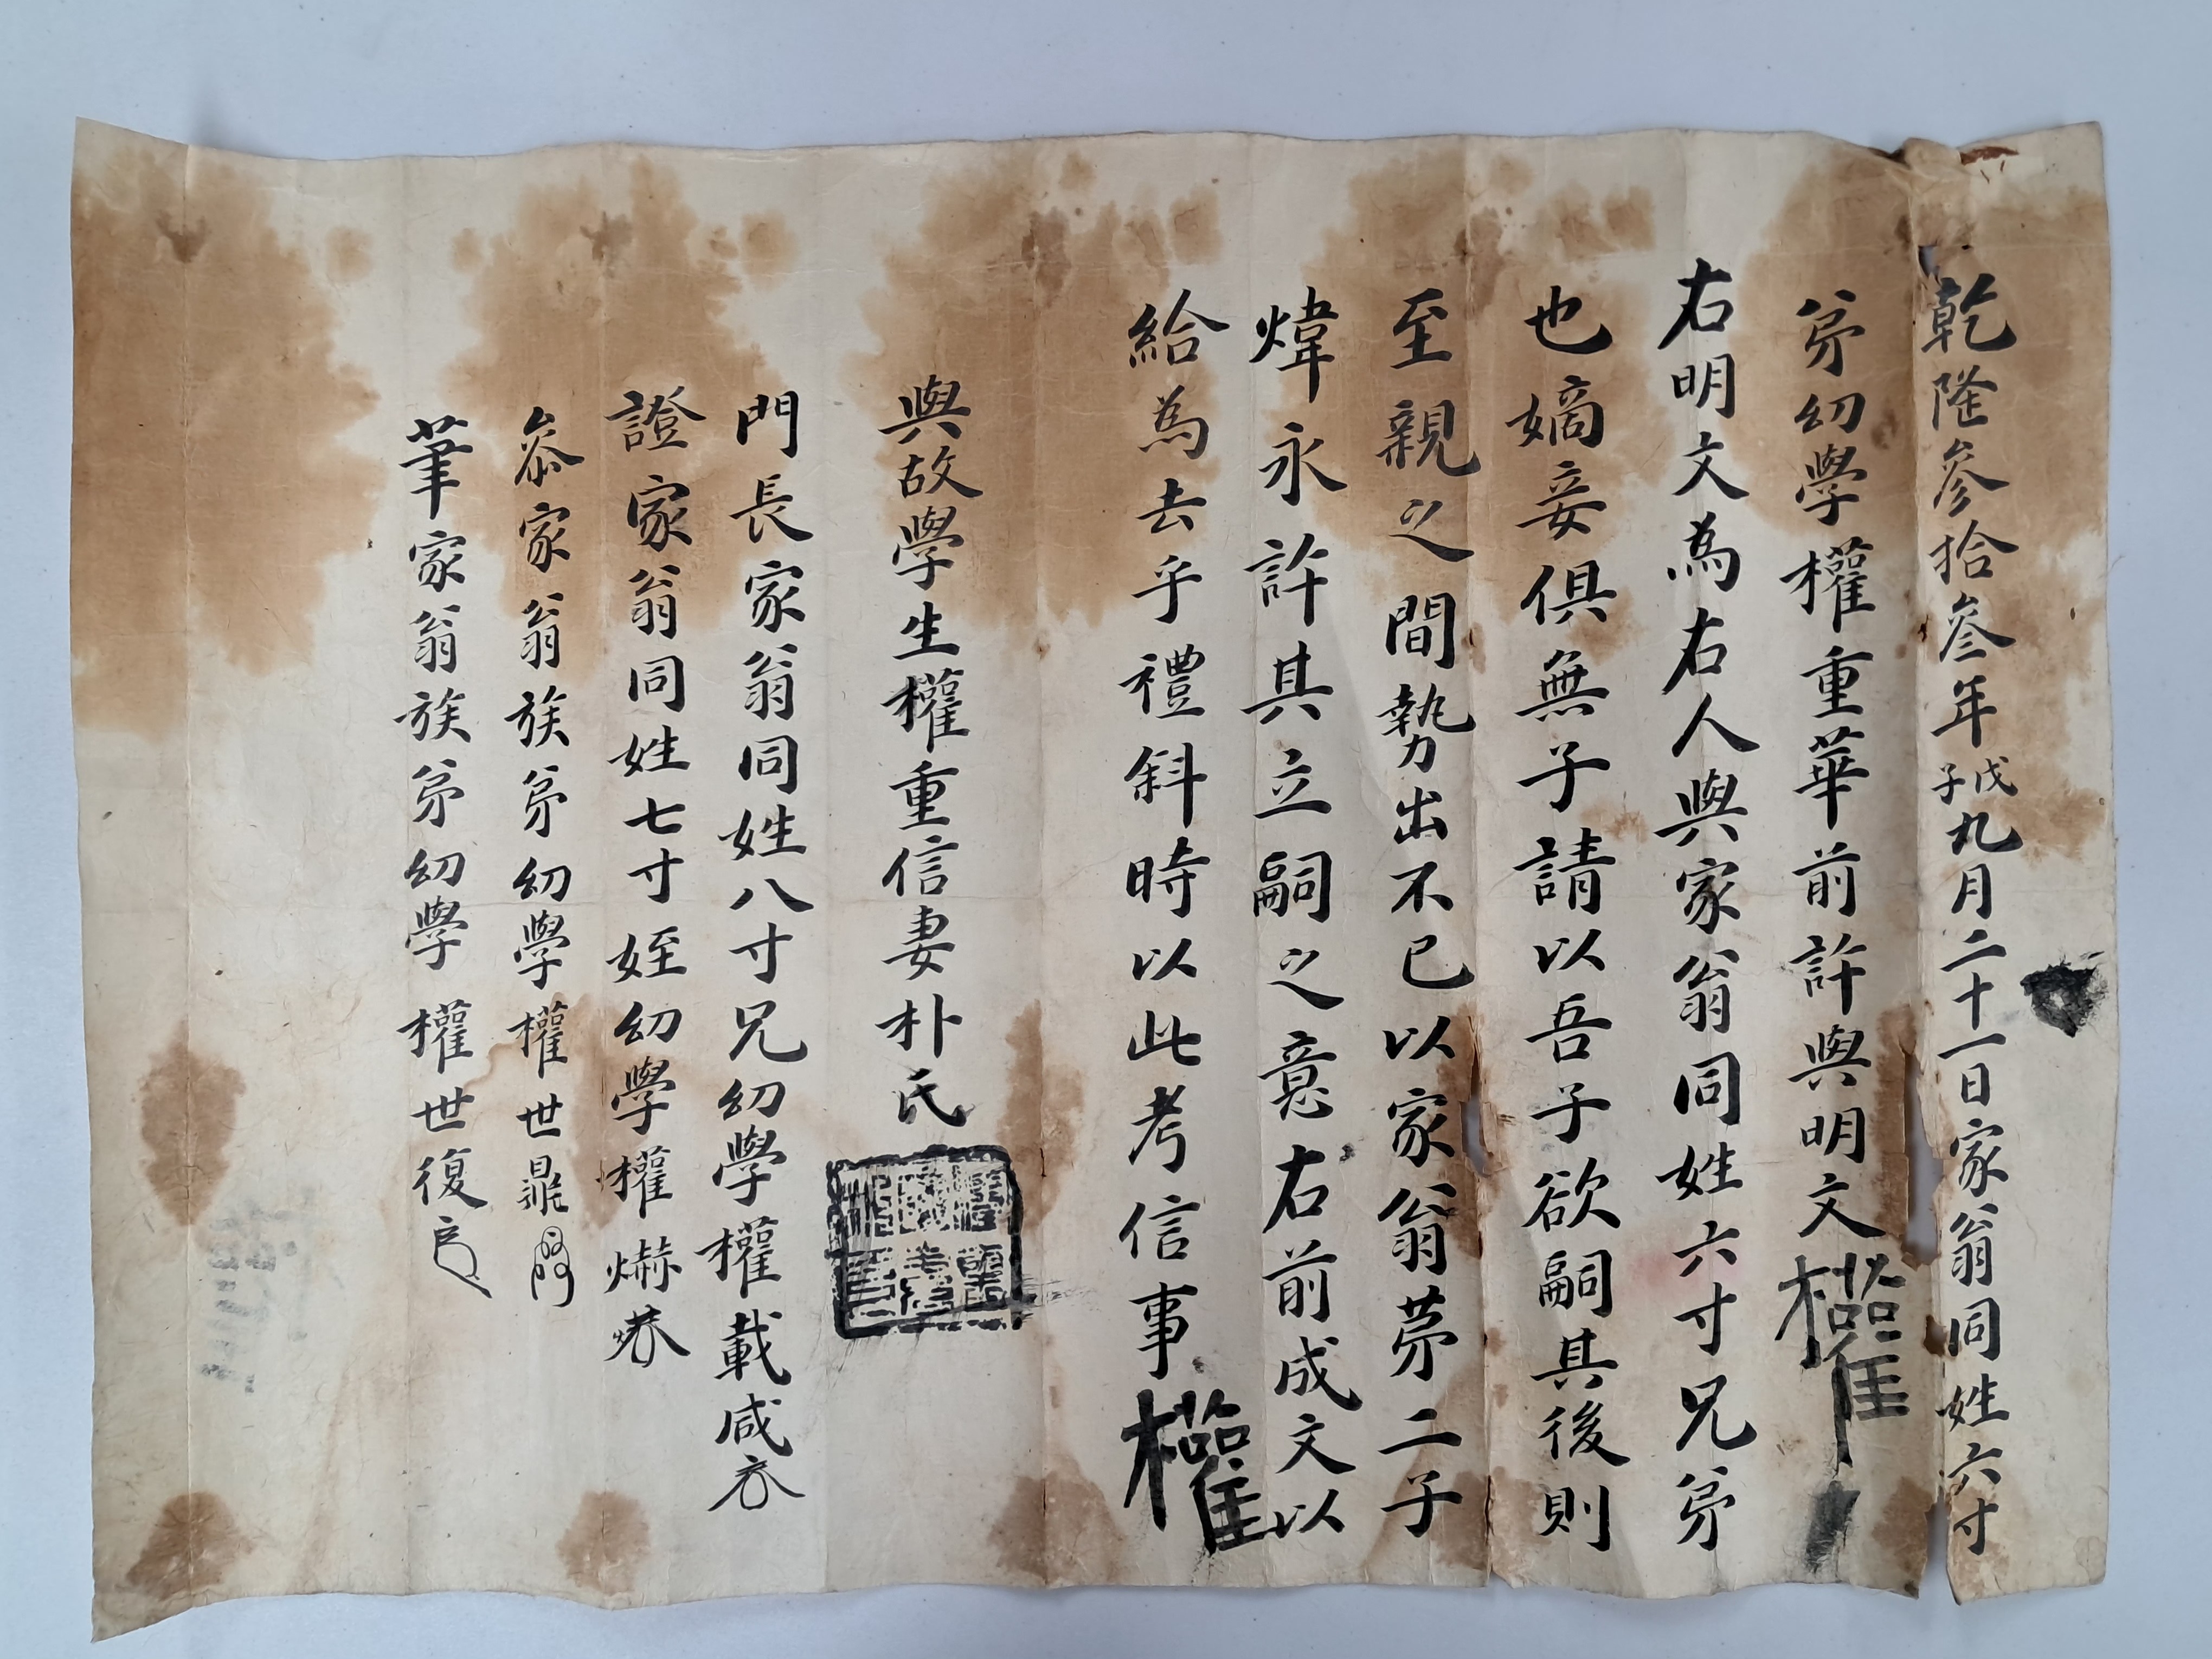 乾隆參拾叄年戊子九月二十一日家翁同姓六寸
弟幼學權重華前許與明文 權
右明文爲右人與家翁同姓六寸兄弟
也嫡妾俱無子請以吾子欲嗣其後則
至親之間勢出不已以家翁第二子
煒永許其立嗣之意右前成文以
給爲去乎禮斜時以此考信事 權
與故學生權重信妻朴氏
門長家翁同姓八寸兄幼學權載咸
證家翁同姓七寸姪幼學權爀
叅家翁族弟幼學權世鼎
筆家翁族弟幼學權世復